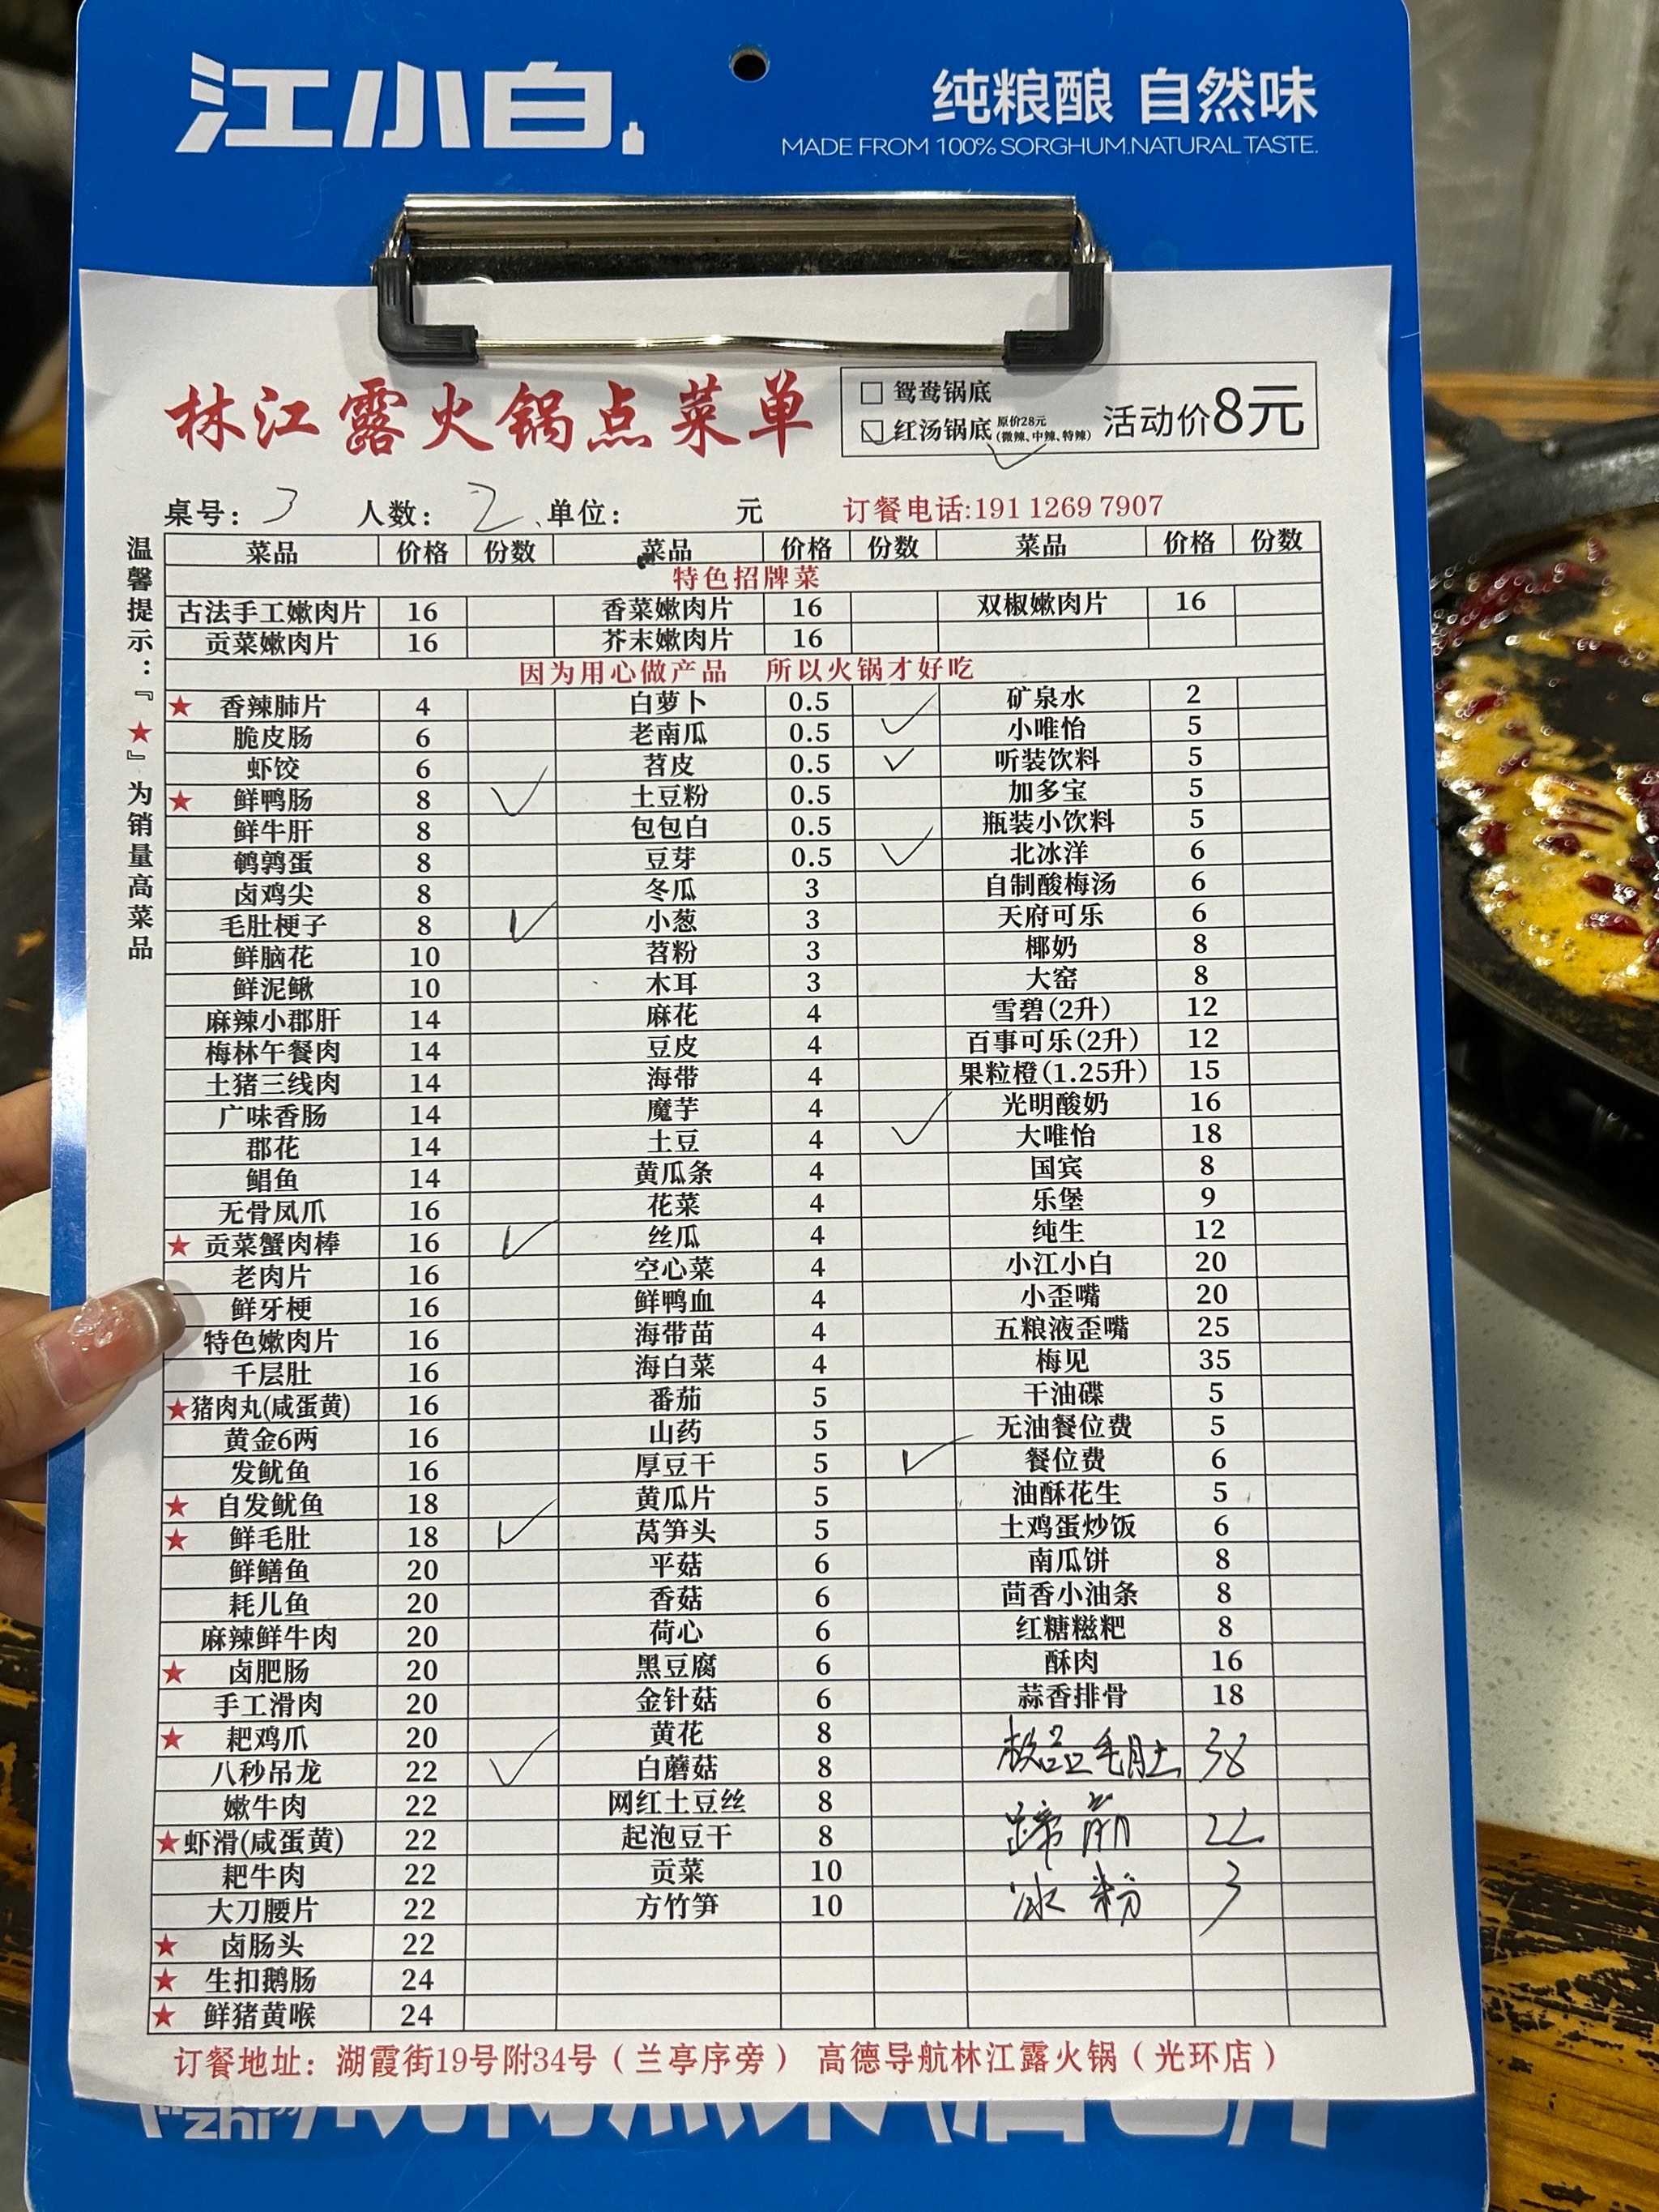 江小白
纯粮酿 自然味
MADE FROM 100% SORGHUM.NATURAL TASTE.
林江露火锅点菜单
鸳鸯锅底
红汤锅底 原价28元 (微辣、中辣、特辣) 活动价8元
桌号：3 人数：2、单位： 元 订餐电话:191 1269 7907
温馨提示：『★』为销量高菜品
菜品 价格 份数 菜品 价格 份数 菜品 价格 份数
特色招牌菜
古法手工嫩肉片 16 香菜嫩肉片 16 双椒嫩肉片 16
贡菜嫩肉片 16 芥末嫩肉片 16
因为用心做产品 所以火锅才好吃
★ 香辣肺片 4 白萝卜 0.5 矿泉水 2
脆皮肠 6 老南瓜 0.5 ✓ 小唯怡 5
虾饺 6 苕皮 0.5 ✓ 听装饮料 5
★ 鲜鸭肠 8 ✓ 土豆粉 0.5 加多宝 5
鲜牛肝 8 包包白 0.5 瓶装小饮料 5
鹌鹑蛋 8 豆芽 0.5 ✓ 北冰洋 6
卤鸡尖 8 冬瓜 3 自制酸梅汤 6
毛肚梗子 8 ✓ 小葱 3 天府可乐 6
鲜脑花 10 苕粉 3 椰奶 8
鲜泥鳅 10 木耳 3 大窑 8
麻辣小郡肝 14 麻花 4 雪碧(2升) 12
梅林午餐肉 14 豆皮 4 百事可乐(2升) 12
土猪三线肉 14 海带 4 果粒橙(1.25升) 15
广味香肠 14 魔芋 4 光明酸奶 16
郡花 14 土豆 4 ✓ 大唯怡 18
鲳鱼 14 黄瓜条 4 国宾 8
无骨凤爪 16 花菜 4 乐堡 9
★ 贡菜蟹肉棒 16 ✓ 丝瓜 4 纯生 12
老肉片 16 空心菜 4 小江小白 20
鲜牙梗 16 鲜鸭血 4 小歪嘴 20
特色嫩肉片 16 海带苗 4 五粮液歪嘴 25
千层肚 16 海白菜 4 梅见 35
★猪肉丸(咸蛋黄) 16 番茄 5 干油碟 5
黄金6两 16 山药 5 无油餐位费 5
发鱿鱼 16 厚豆干 5 ✓ 餐位费 6
★ 自发鱿鱼 18 黄瓜片 5 油酥花生 5
★ 鲜毛肚 18 ✓ 莴笋头 5 土鸡蛋炒饭 6
鲜鳝鱼 20 平菇 6 南瓜饼 8
耗儿鱼 20 香菇 6 茴香小油条 8
麻辣鲜牛肉 20 荷心 6 红糖糍粑 8
★ 卤肥肠 20 黑豆腐 6 酥肉 16
手工滑肉 20 金针菇 6 蒜香排骨 18
★ 耙鸡爪 20 黄花 8 极品毛肚 38
八秒吊龙 22 ✓ 白蘑菇 8
嫩牛肉 22 网红土豆丝 8
★虾滑(咸蛋黄) 22 起泡豆干 8 蹄筋 22
耙牛肉 22 贡菜 10
大刀腰片 22 方竹笋 10 冰粉 3
★ 卤肠头 22
★ 生扣鹅肠 24
★ 鲜猪黄喉 24
订餐地址：湖霞街19号附34号（兰亭序旁） 高德导航林江露火锅（光环店）
"zhi"